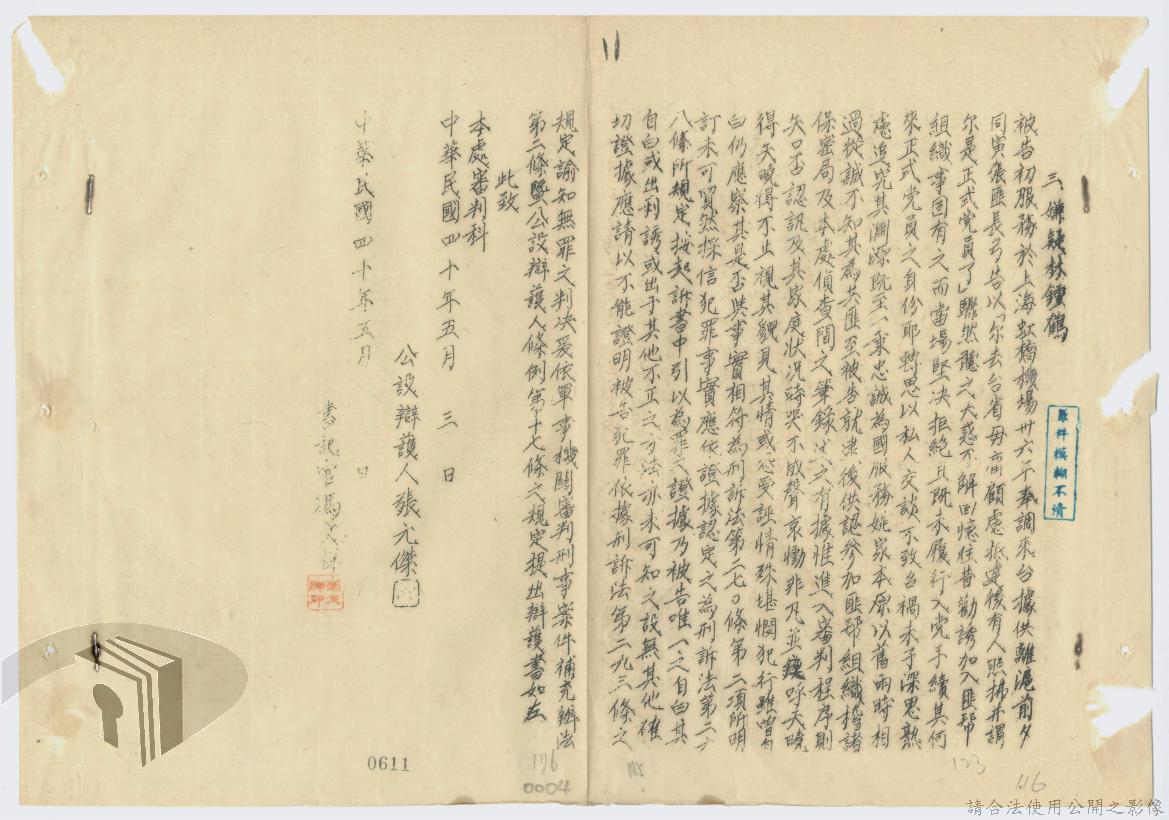 11
三、嫌疑林鍾鶴
被告初服務於上海虹橋機場卅六年奉調來台據供離滬前夕
同寅張匪長弓告以「尔去台省毋庸顧慮抵達後有人照拂并謂
尔是正式党員了」驟然聽之大惑不解回憶往昔勸誘加入匪幫
組織事固有之而當場堅決拒絕且既未履行入党手續其何
來正式党員之身份耶轉思以私人交談不致召禍未予深思熟
慮追究其淵源既至、秉忠誠為國服務姚家本原以舊雨時相
過從誠不知其為共匪至被告就逮後供認參加匪部組織稽諸
保密局及本處偵查間之筆錄 有據惟進入審判程序則
矢口否認訊及其家庭狀況時哭不成聲哀慟非凡並 呼天曉
得矢曉得不止視其貌見其情或 受誣情殊堪憫犯行雖曾自
白仍應察其是否與事實相符為刑訴法第二七〇條第二項所明
訂未可貿然採信犯罪事實應依證據認定之為刑訴法第二六
八條所規定按起訴書中引以為罪之證據乃被告唯一之自白其
自白或出利誘或出于其他不正之方法亦未可知之設無其他確
切證據應請以不能證明被告犯罪依據刑訴法第二九三條之
規定諭知無罪之判決爰依軍事機關審判刑事案件補充辦法
第二條暨公設辯護人條例第十七條之規定提出辯護書如左
此致
本處審判科
中華民國四十年五月 三 日
公設辯護人張元傑
中華民國四十年五月 日
書記官馮
原件模糊不清
0611
116
0004
115
123
116
請合法使用公開之影像